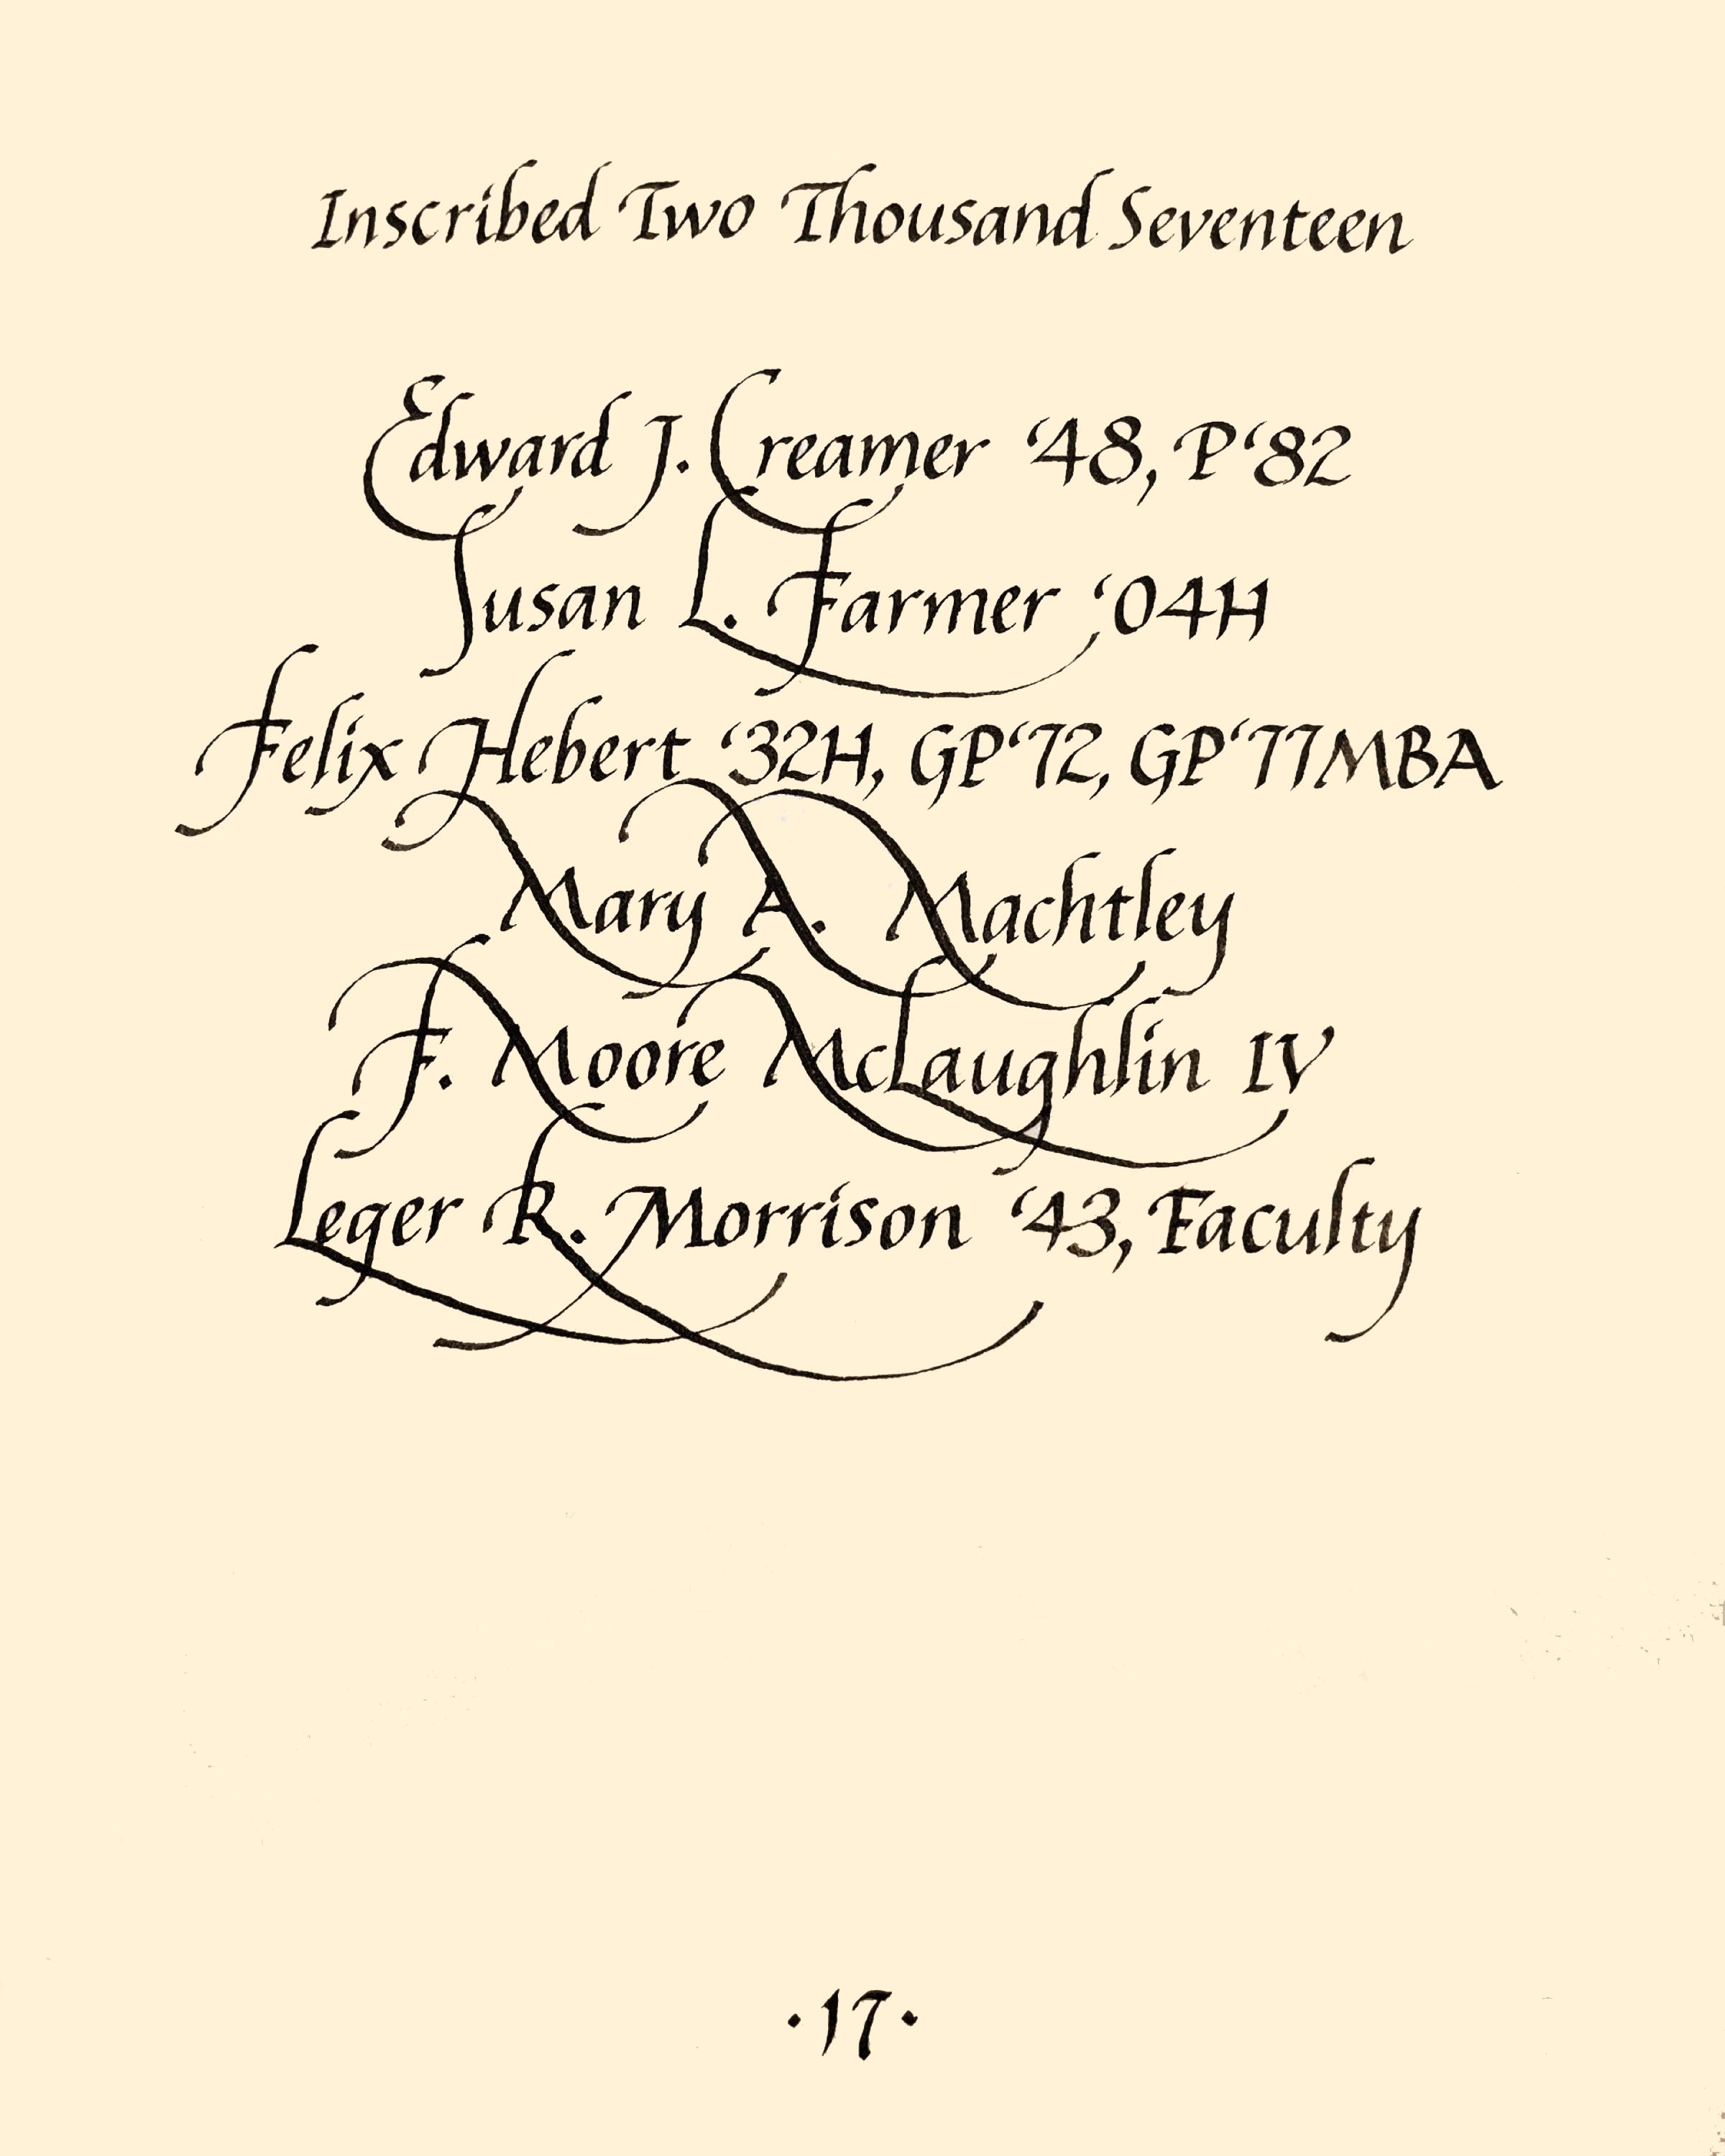 Inscribed Two Thousand Seventeen
Edward J. Creamer ‘48, P‘82
Susan L. Farmer ‘04H
Felix Hebert ‘32H, GP‘72, GP‘77MBA
Mary A. Machtley
F. Moore McLaughlin IV
Leger R. Morrison ‘43, Faculty
·17·